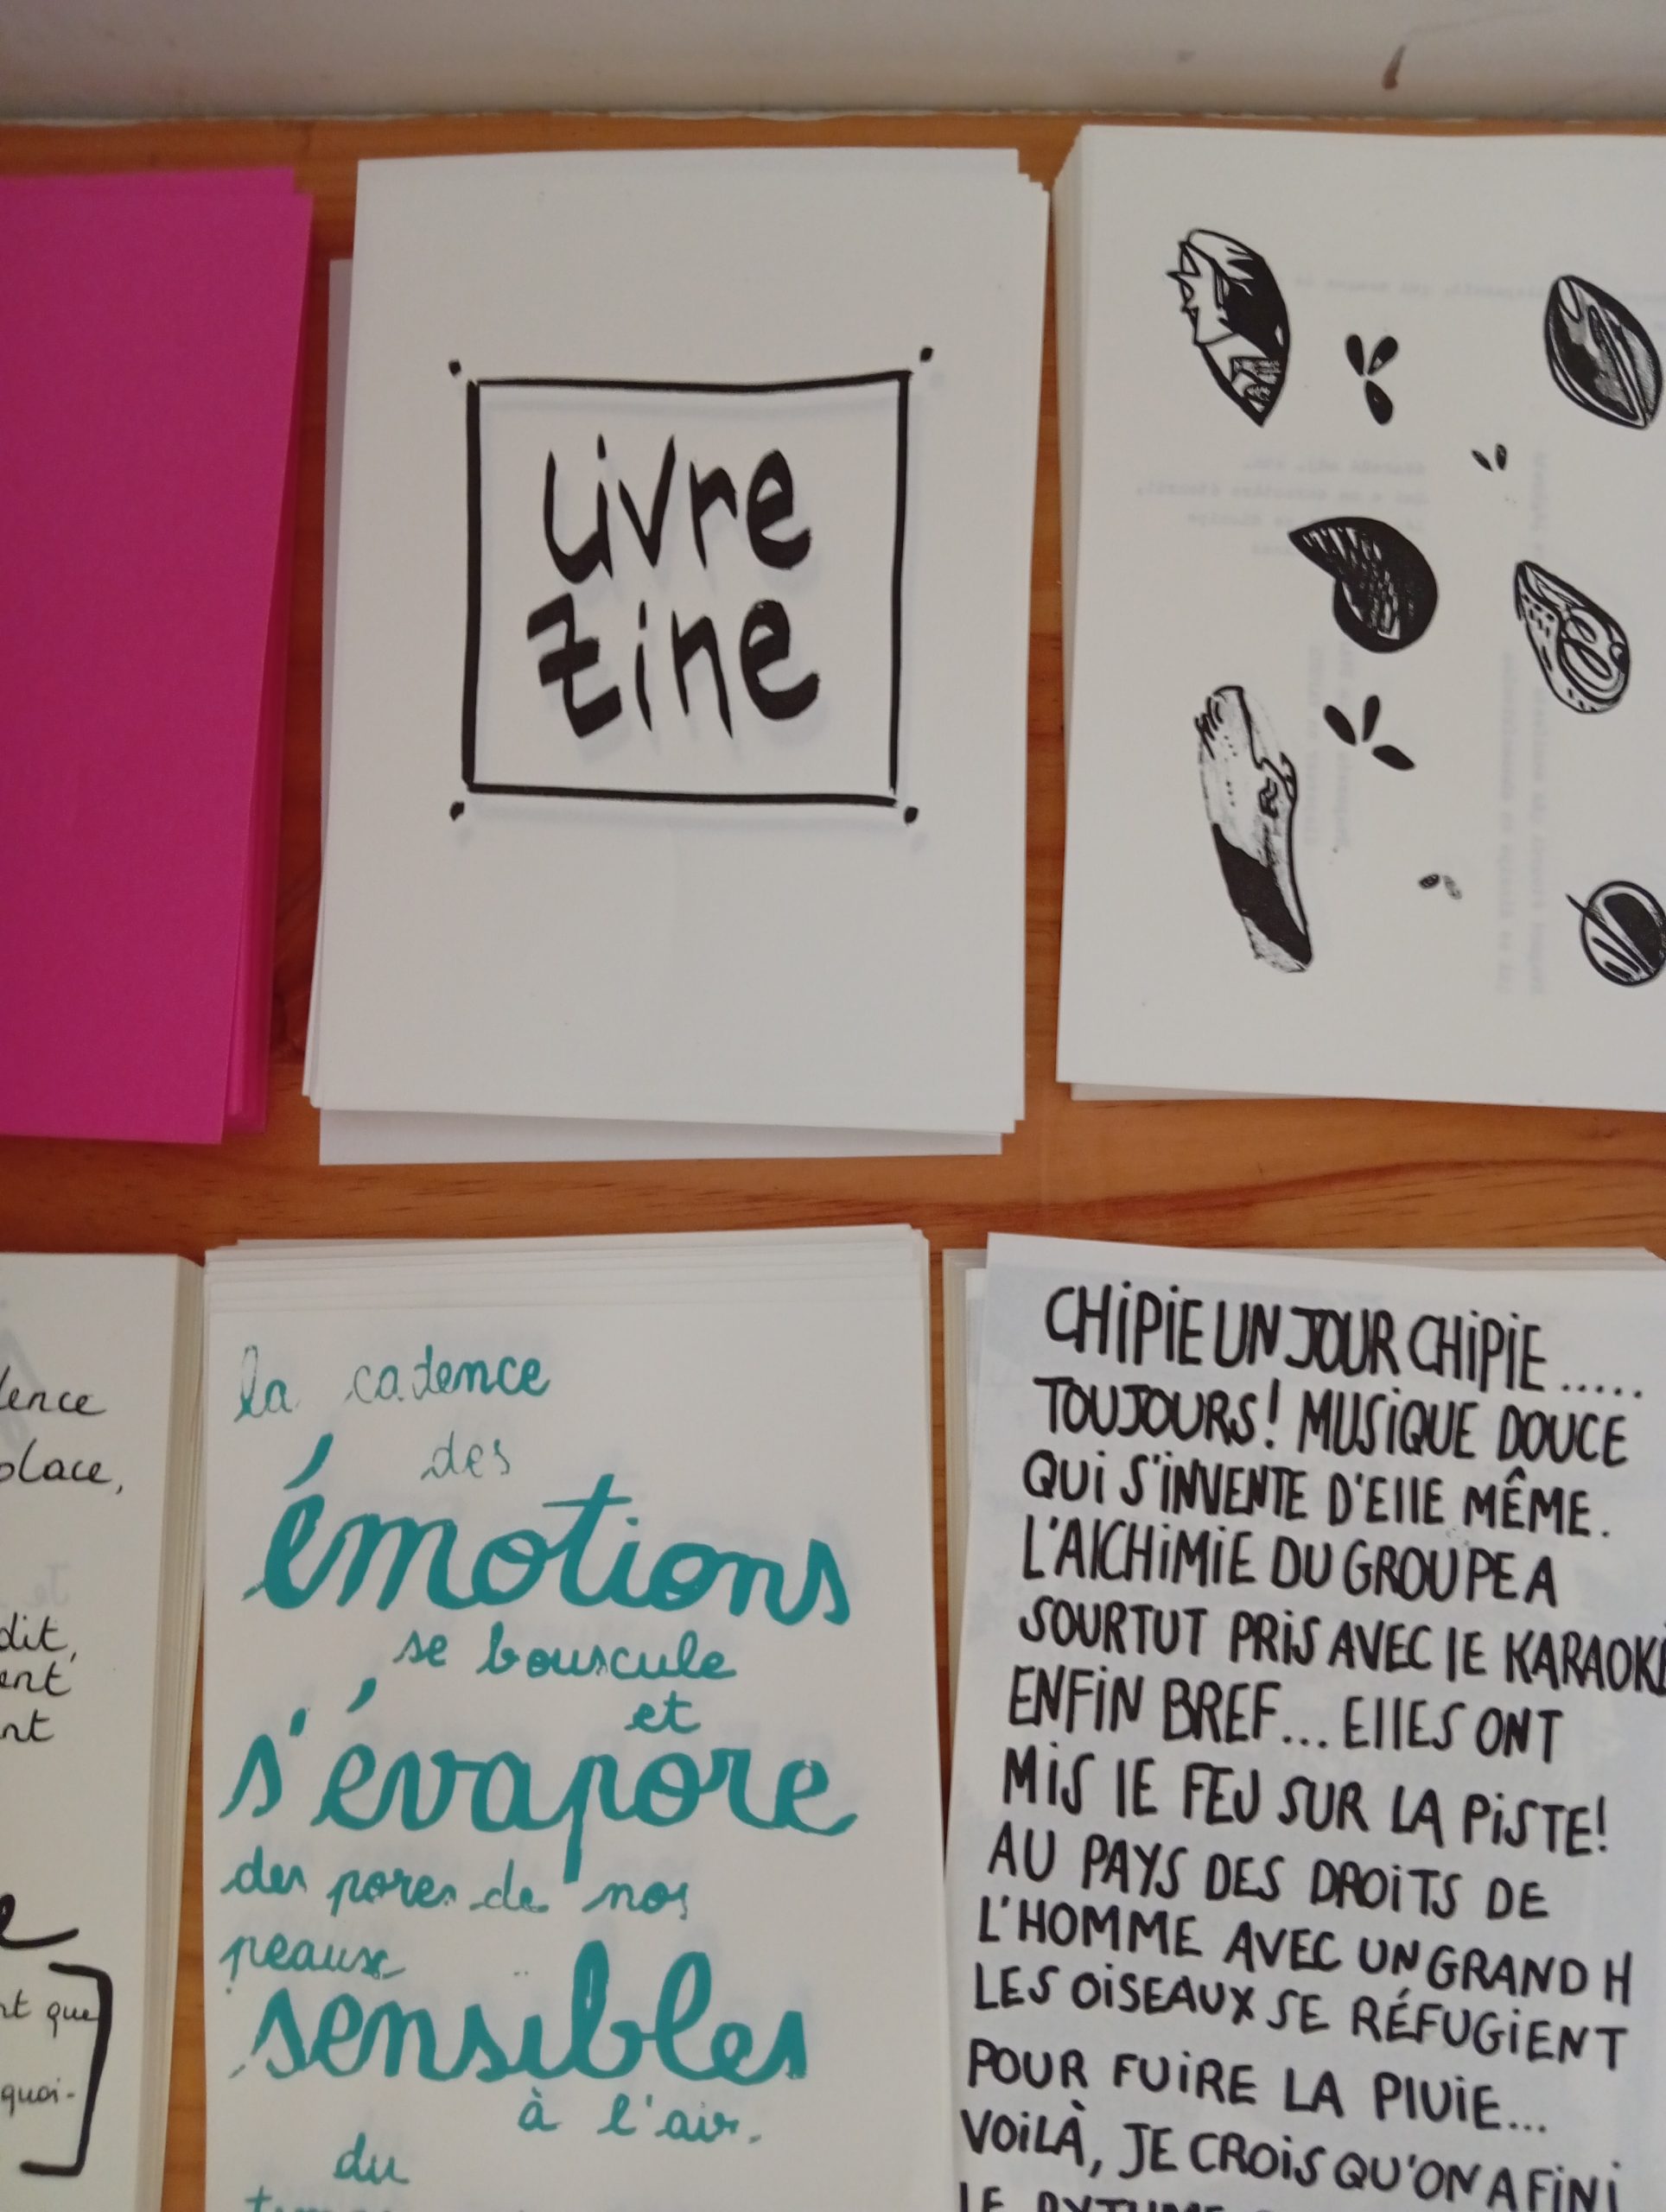 Livre
Zine
lence
place,
dit,
ent
nt
nt que
quoi-
la cadence
des
émotions
se bouscule
et
s'évapore
des pores de nos
peaux
sensibles
à l'air.
du
CHIPIE UN JOUR CHIPIE .....
TOUJOURS! MUSIQUE DOUCE
QUI S'INVENTE D'ELLE MÊME.
L'ALCHIMIE DU GROUPE A
SOURTUT PRIS AVEC LE KARAOKÉ
ENFIN BREF... ELLES ONT
MIS LE FEU SUR LA PISTE!
AU PAYS DES DROITS DE
L'HOMME AVEC UN GRAND H
LES OISEAUX SE RÉFUGIENT
POUR FUIRE LA PLUIE...
VOILÀ, JE CROIS QU'ON A FINI
LE RYTHME